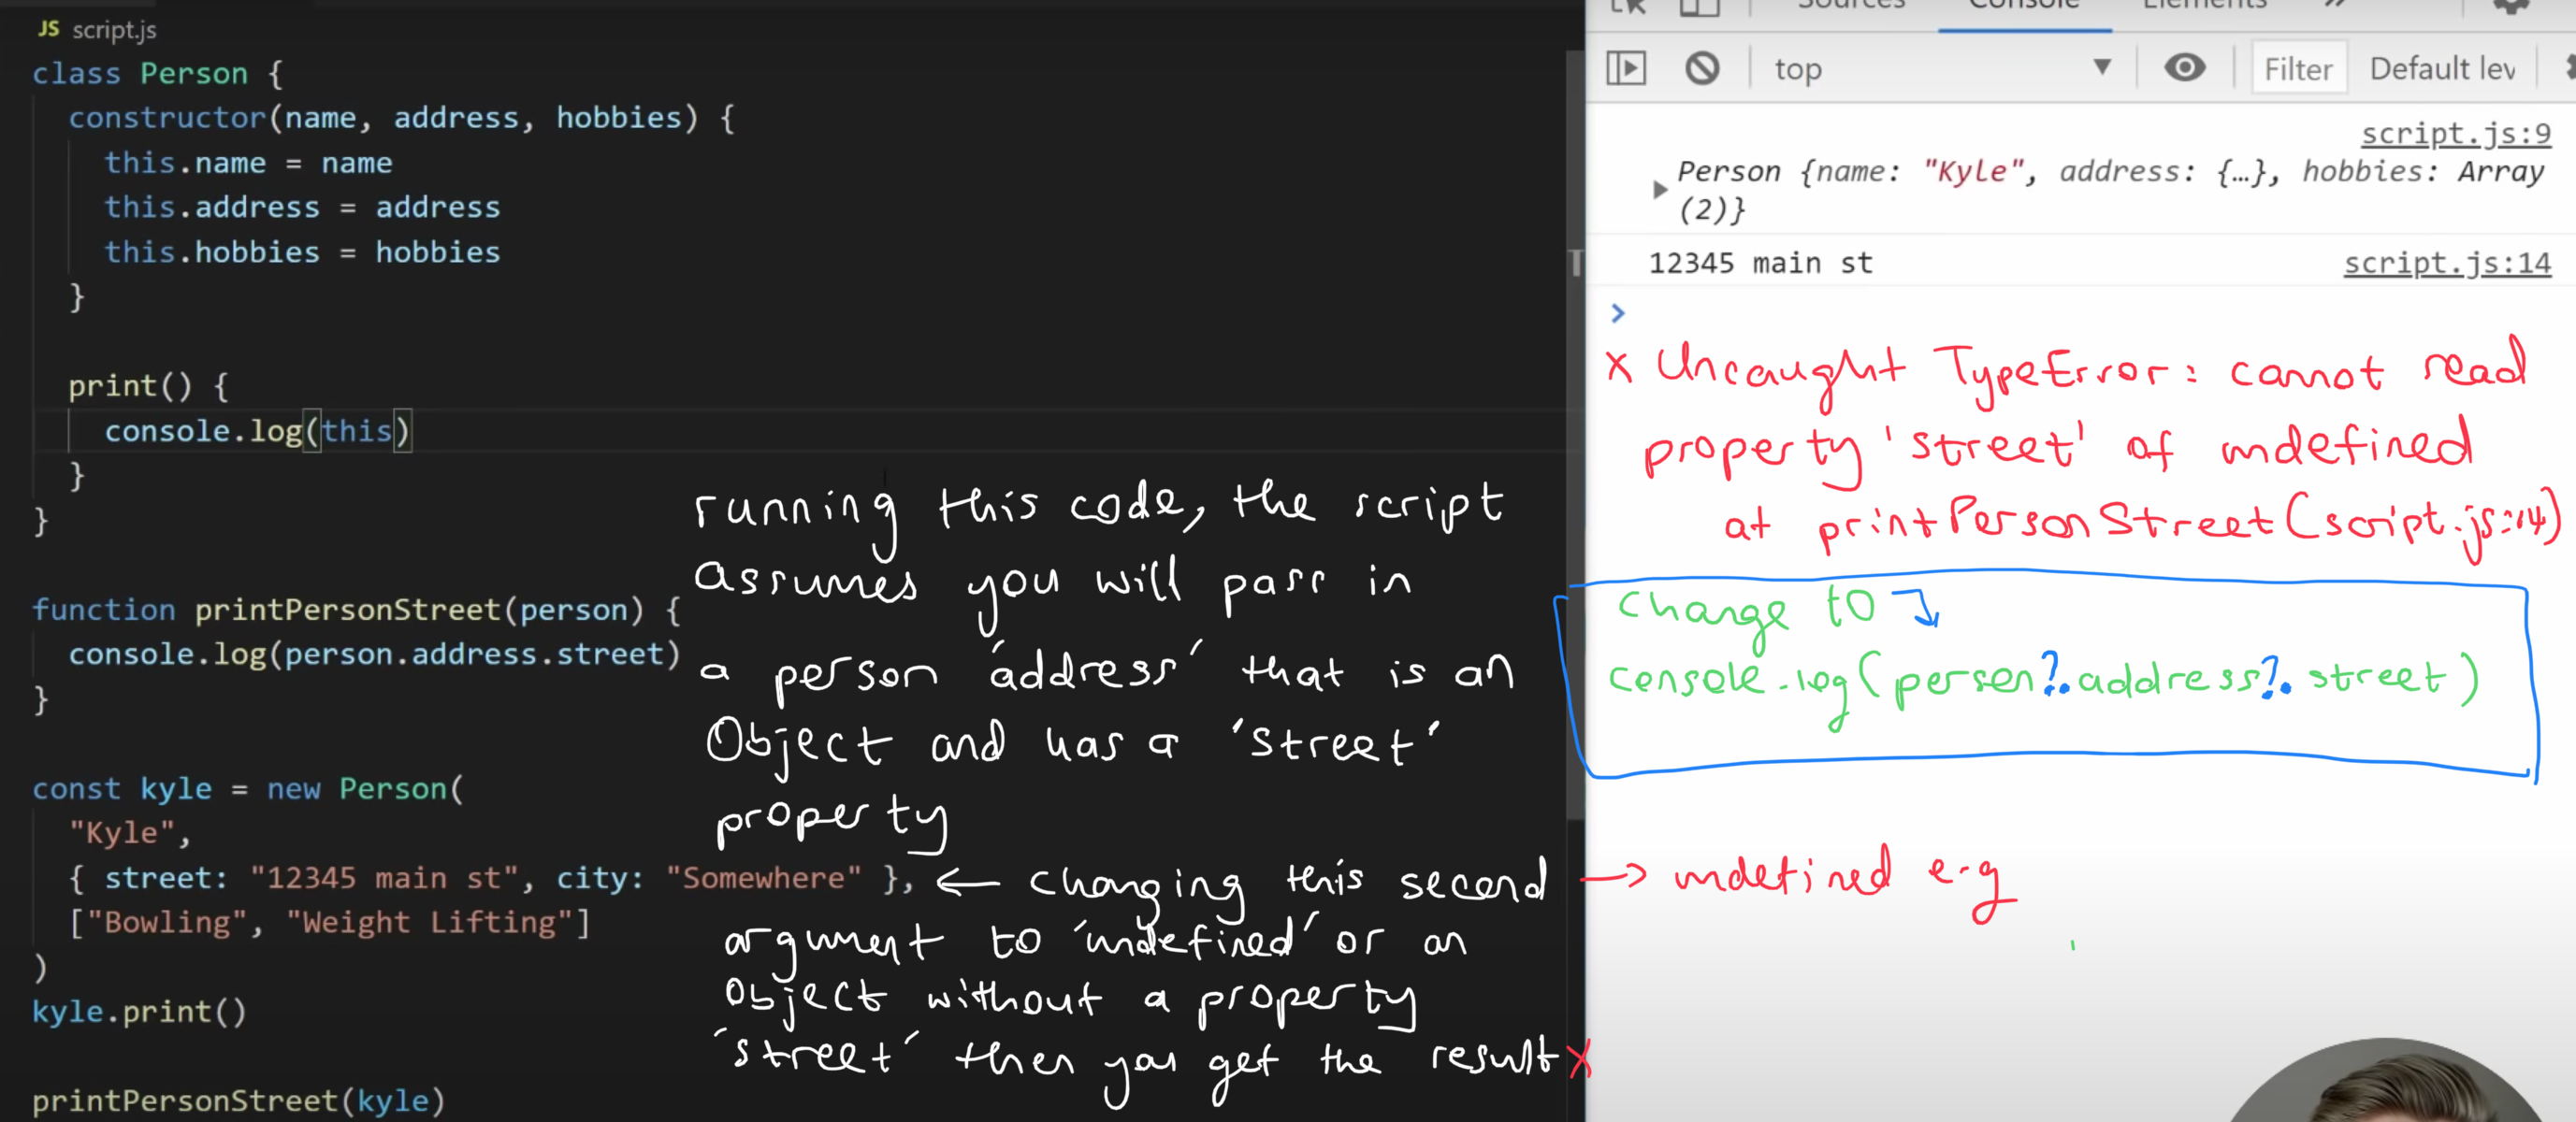 JS script.js
class Person {
constructor(name, address, hobbies) {
this.name = name
this.address = address
this.hobbies = hobbies
}
print() {
console.log(this)
}
}
function printPersonStreet(person) {
console.log(person.address.street)
}
const kyle = new Person(
"Kyle",
{ street: "12345 main st", city: "Somewhere" },
["Bowling", "Weight Lifting"]
)
kyle.print()
printPersonStreet(kyle)
running this code, the script
assumes you will pass in
a person 'address' that is an
Object and has a 'street'
property
← changing this second
argument to 'undefined' or an
Object without a property
'street' then you get the result x
Sources Console Elements »
top ▼ Filter Default lev
script.js:9
▶ Person {name: "Kyle", address: {…}, hobbies: Array
(2)}
12345 main st script.js:14
>
x Uncaught TypeError: cannot read
property 'street' of undefined
at printPersonStreet(script.js:14)
change to
console.log(person?.address?.street)
→ undefined e.g